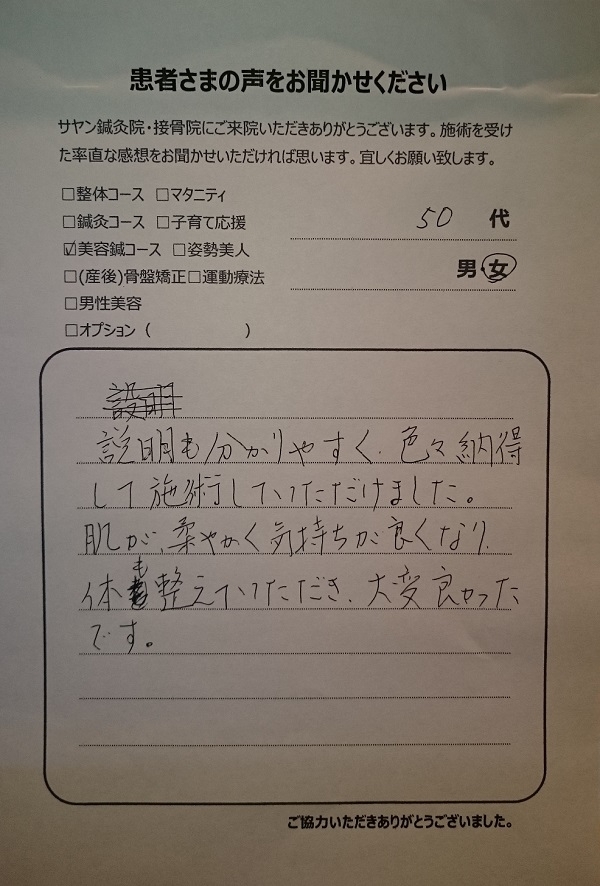 患者さまの声をお聞かせください
サヤン鍼灸院・接骨院にご来院いただきありがとうございます。施術を受け
た率直な感想をお聞かせいただければ思います。宜しくお願い致します。
□整体コース □マタニティ
□鍼灸コース □子育て応援
☑美容鍼コース □姿勢美人
□(産後)骨盤矯正□運動療法
□男性美容
□オプション（ ）
50 代
男・女
説明
説明も分かりやすく、色々納得
して施術していただけました。
肌が、柔やかく気持ちが良くなり、
体も整えていただき、大変良かった
です。
ご協力いただきありがとうございました。